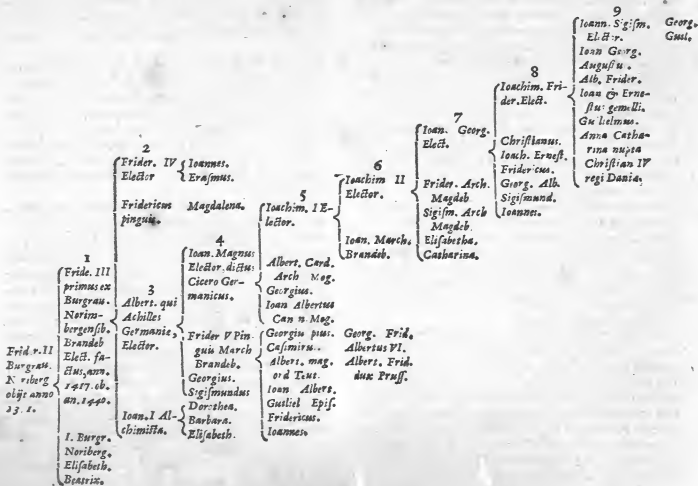 Frid.r. II
Burgrau.
N riberg
obijt anno
13. 1.
1
Fride. III
primus ex
Burgrau.
Norim-
bergenſib.
Brandeb
Elect. fa-
ctus, ann.
1417. ob.
an. 1440.
I. Burgr.
Noriberg.
Eliſabeth.
Beatrix.
2
Frider. IV
Elector
Ioannes.
Eraſmus.
Fridericus
pinguis.
Magdalena.
3
Albert. qui
Achilles
Germanie,
Elector.
Ioan. I Al-
chimiſta.
4
Ioan. Magnus
Elector. dictus
Cicero Ger-
manicus.
Frider V Pin
guis March
Brandeb.
Georgius.
Sigiſmundus
Dorothea.
Barbara.
Eliſabeth.
5
Ioachim. I E-
lector.
Albert. Card.
Arch Mag.
Georgius.
Ioan Albertus
Can n. Mag.
Georgiu pius.
Georg. Frid.
Caſimiru.
Albertus VI.
Albert. mag.
ord Teut.
Albert. Frid.
dux Pruſſ.
Ioan Albert.
Guſliel Epiſ.
Fridericus.
Ioannes.
6
Ioachim II
Elector.
Ioan. March.
Brandeb.
7
Ioan. Georg.
Elect.
Frider. Arch
Magdeb
Sigiſm. Arch
Magdeb.
Eliſabetha.
Catharina.
8
Ioachim. Fri-
der. Elect.
Chriſtianus.
Ioach. Erneſt.
Fridericus.
Georg. Alb.
Sigiſmund.
Ioannes.
9
Ioann. Sigiſm.
Elector.
Georg.
Guil.
Ioan Georg.
Auguſtu.
Alb. Frider.
Ioan & Erne-
ſtus gemelli.
Gulielmus.
Anna Catha-
rina nupta
Chriſtian IV
regi Daniæ.